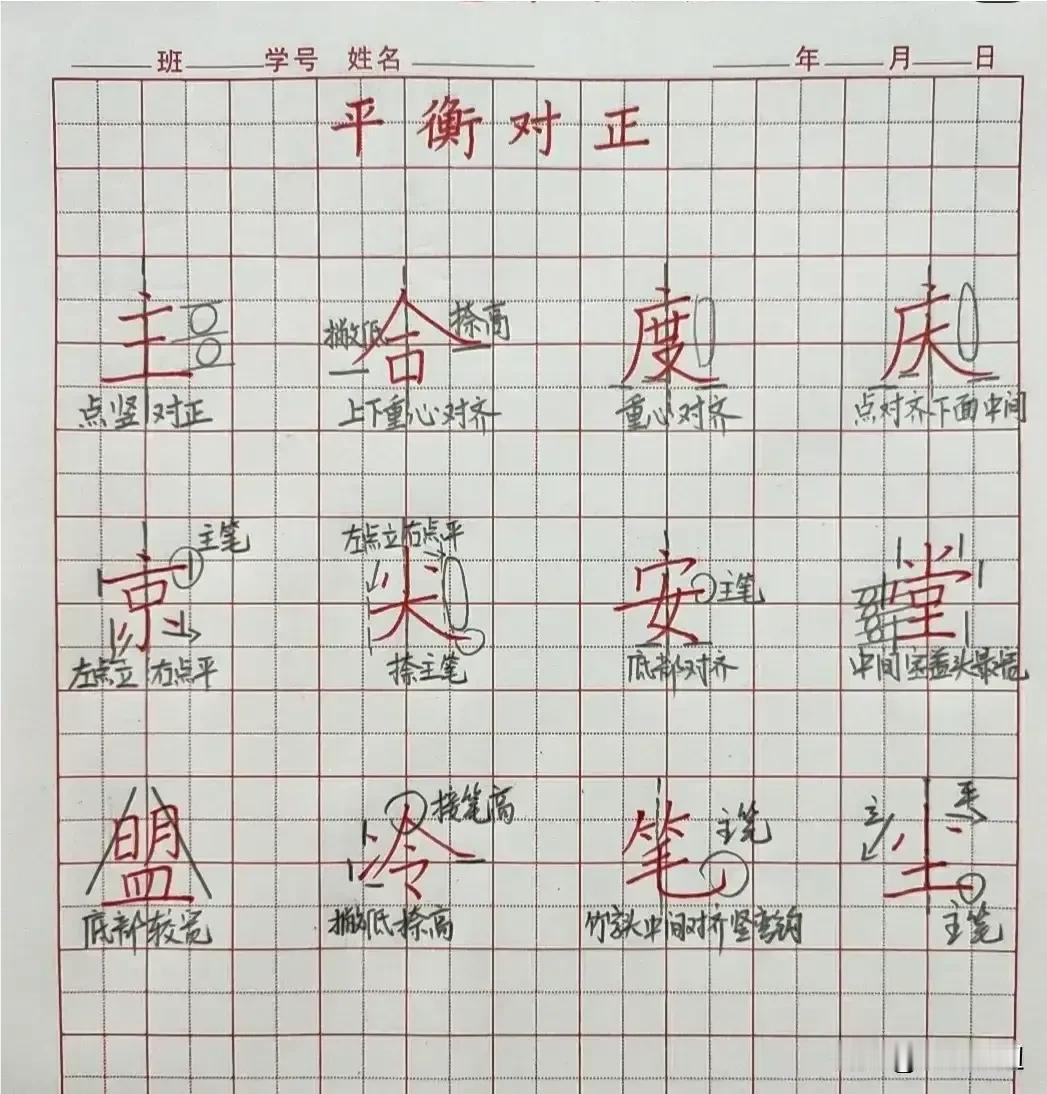 班 学号 姓名 年 月 日
平衡对正
主 合 度 庆
撇低 捺高
点竖对正 上下重心对齐 重心对齐 点对齐下面中间
主笔 左点立右点平
京 尖 安 主笔 堂
左点立 右点平 捺主笔 底部对齐 中间宝盖头最宽
接笔高 主笔 立 平
盟 冷 笔 尘
底部较宽 撇低捺高 竹字头中间对齐竖弯钩 主笔